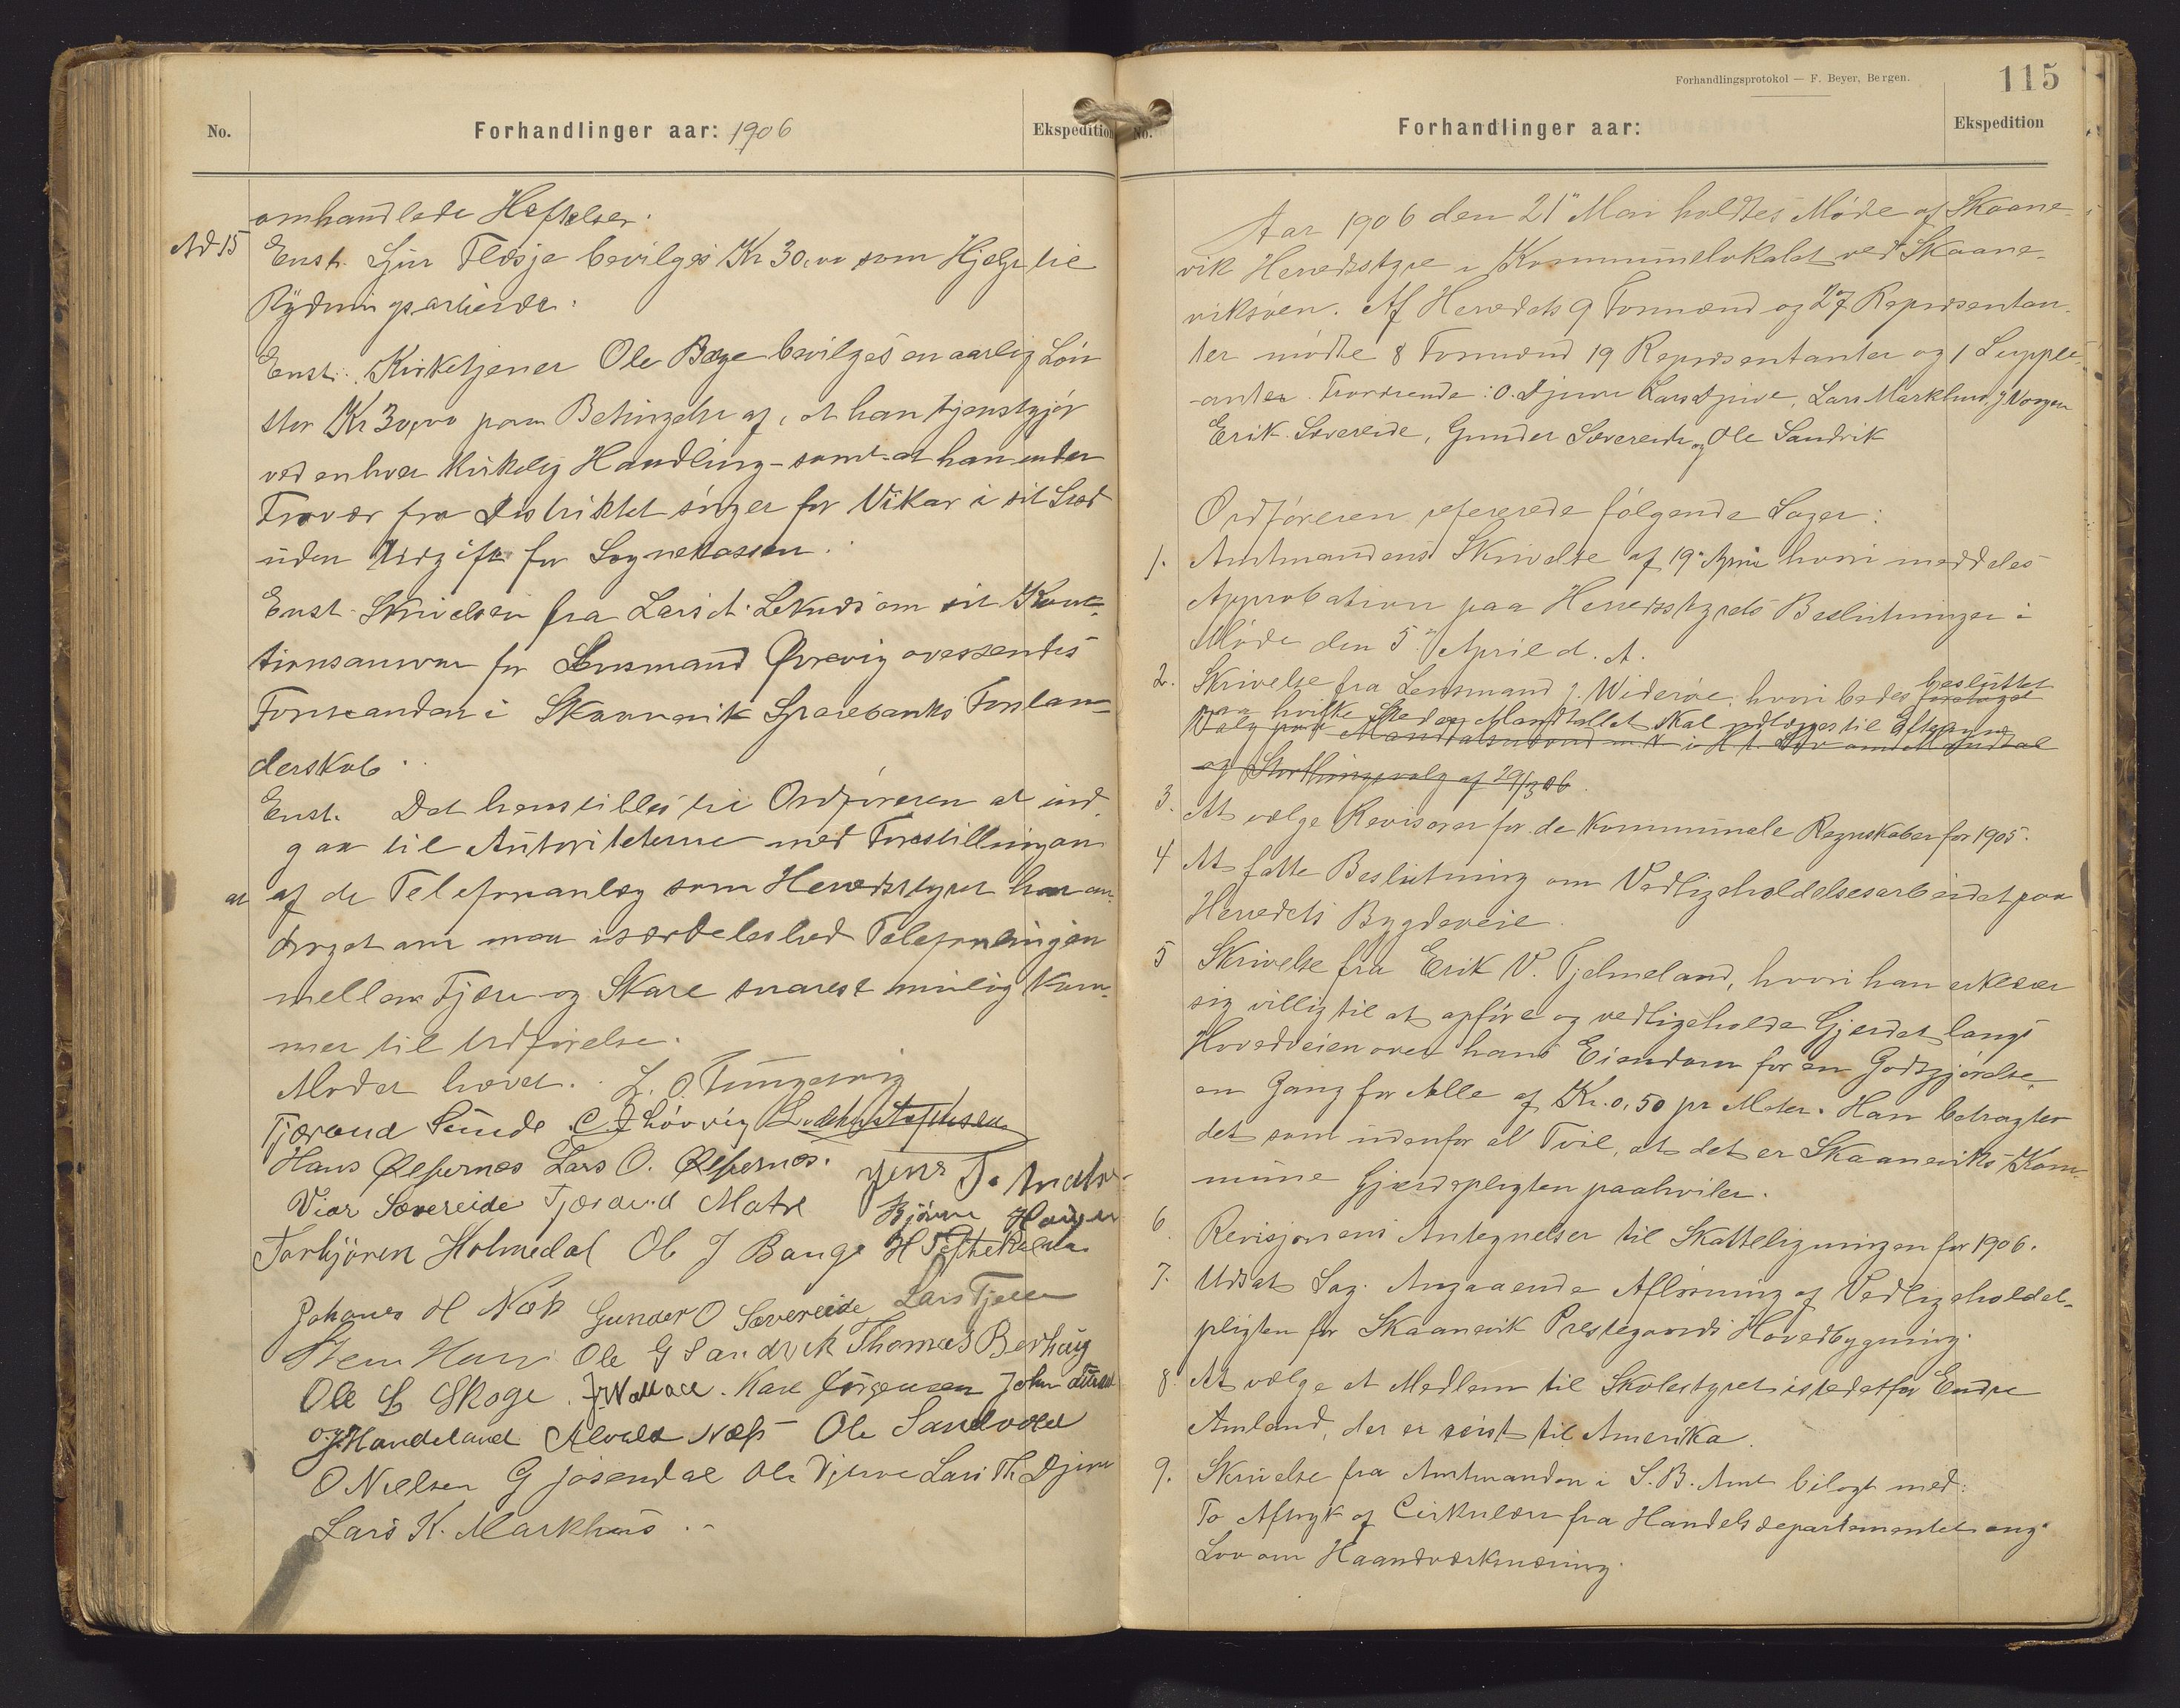 No.
Forhandlinger aar: 1906
Ekspedition
omhandlede Heftelser.
Ad 15 Enst. Sjur Flæsje bevilges Kr 30,00 som Hjelp til
Rydningsarbeide.
Enst. Kirketjener Ole Bæge bevilges en aarlig Løn
stor Kr 30,00 paa Betingelse af, at han tjenstgjør
ved enhver kirkelig Handling - samt at han under
Fravær fra Distriktet sørger for Vikar i sit Sted
uden Udgift for Sognekassen.
Enst. Skrivelsen fra Lars A. Leknes om sit Kau-
tionsansvar for Lensmand Øvrevig oversendes
Forstanderen i Skaanevik Sparebanks Forstan-
derskab.
Enst. Det henstilles til Ordføreren at ind-
gaa til Autoriteterne med Forestilling om
at af de Telefonanlæg som Herredsstyret har an-
draget om maa isærdeleshed Telefonlinjen
mellem Fjære og Skare snarest mulig kom-
mer til Udførelse.
Mødet hævet. L. O. Tungesvig
Tjærand Sunde C J Løvvig
Hans Ølfernes Lars O. Ølfernes. Jens T.
Vier Sævereide Tjærand Matre Bjørn Haugen
Torbjøren Holmedal Ol J Bauge H
Johanes H Næs Gunder O Sævereide Lars Tjelle
Ole G Sandvik Thomas Berhaug
Ole L Skoge. J. Wallace. Karl Jørgensen John
O. J. Handeland Alvald Næss Ole Sandvold
O Nielsen G Jøsendal Ole Djuve Lars Th. Djuve
Lars K. Markhus.
Forhandlingsprotokol — F. Beyer, Bergen.
115
No.
Forhandlinger aar:
Ekspedition
Aar 1906 den 21" Mai holdtes Møde af Skaane-
vik Herredsstyre i Kommunelokalet ved Skaane-
viksøen. Af Herredets 9 Formænd og 27 Repræsentan-
ter mødte 8 Formænd 19 Repræsentanter og 1 Supple-
anter. Fraværende: O. Djuve Lars Djuve, Lars Markhus, J Vaagen
Erik Sævereide, Gunder Sævereide og Ole Sandvik
Ordføreren refererede følgende Sager:
1. Amtmandens Skrivelse af 19. April hvori meddeles
Approbation paa Herredsstyrets Beslutninger i
Møde den 5. April d. A.
2. Skrivelse fra Lensmand J. Widerøe, hvori bedes foretaget besluttet
paa hvilke Steder Mandtallet skal udlægges til Eftersyn
Valg paa Mandtalsmænd m. v. i H. t. Lov om Mandtal
og Storthingsvalg af 29/3 06.
3. At vælge Revisorer for de kommunale Regnskaber for 1905.
4 At fatte Beslutning om Vedligeholdelsesarbeidet paa
Herredets Bygdeveie.
5 Skrivelse fra Erik V. Tjelmeland, hvori han erklærer
sig villig til at opføre og vedligeholde Gjerdet langs
Hovedveien over hans Eiendom for en Godtgjørelse
en Gang for Alle af Kr. 0,50 pr Meter. Han betragter
det som udenfor al Tvil, at det er Skaaneviks Kom-
mune Gjerdepligten paahviler.
6. Revisjonens Antegnelser til Skatteligningen for 1906.
7. Udsat Sag. Angaaende Afløsning af Vedligeholdel-
pligten for Skaanevik Prestegaards Hovedbygning.
8. At vælge et Medlem til Skolestyret istedetfor Endre
Amland, der er reist til Amerika.
9. Skrivelse fra Amtmanden i S. B. Amt bilagt med:
To Aftryk af Cirkulære fra Handelsdepartementet ang.
Lov om Haandværksnæring.